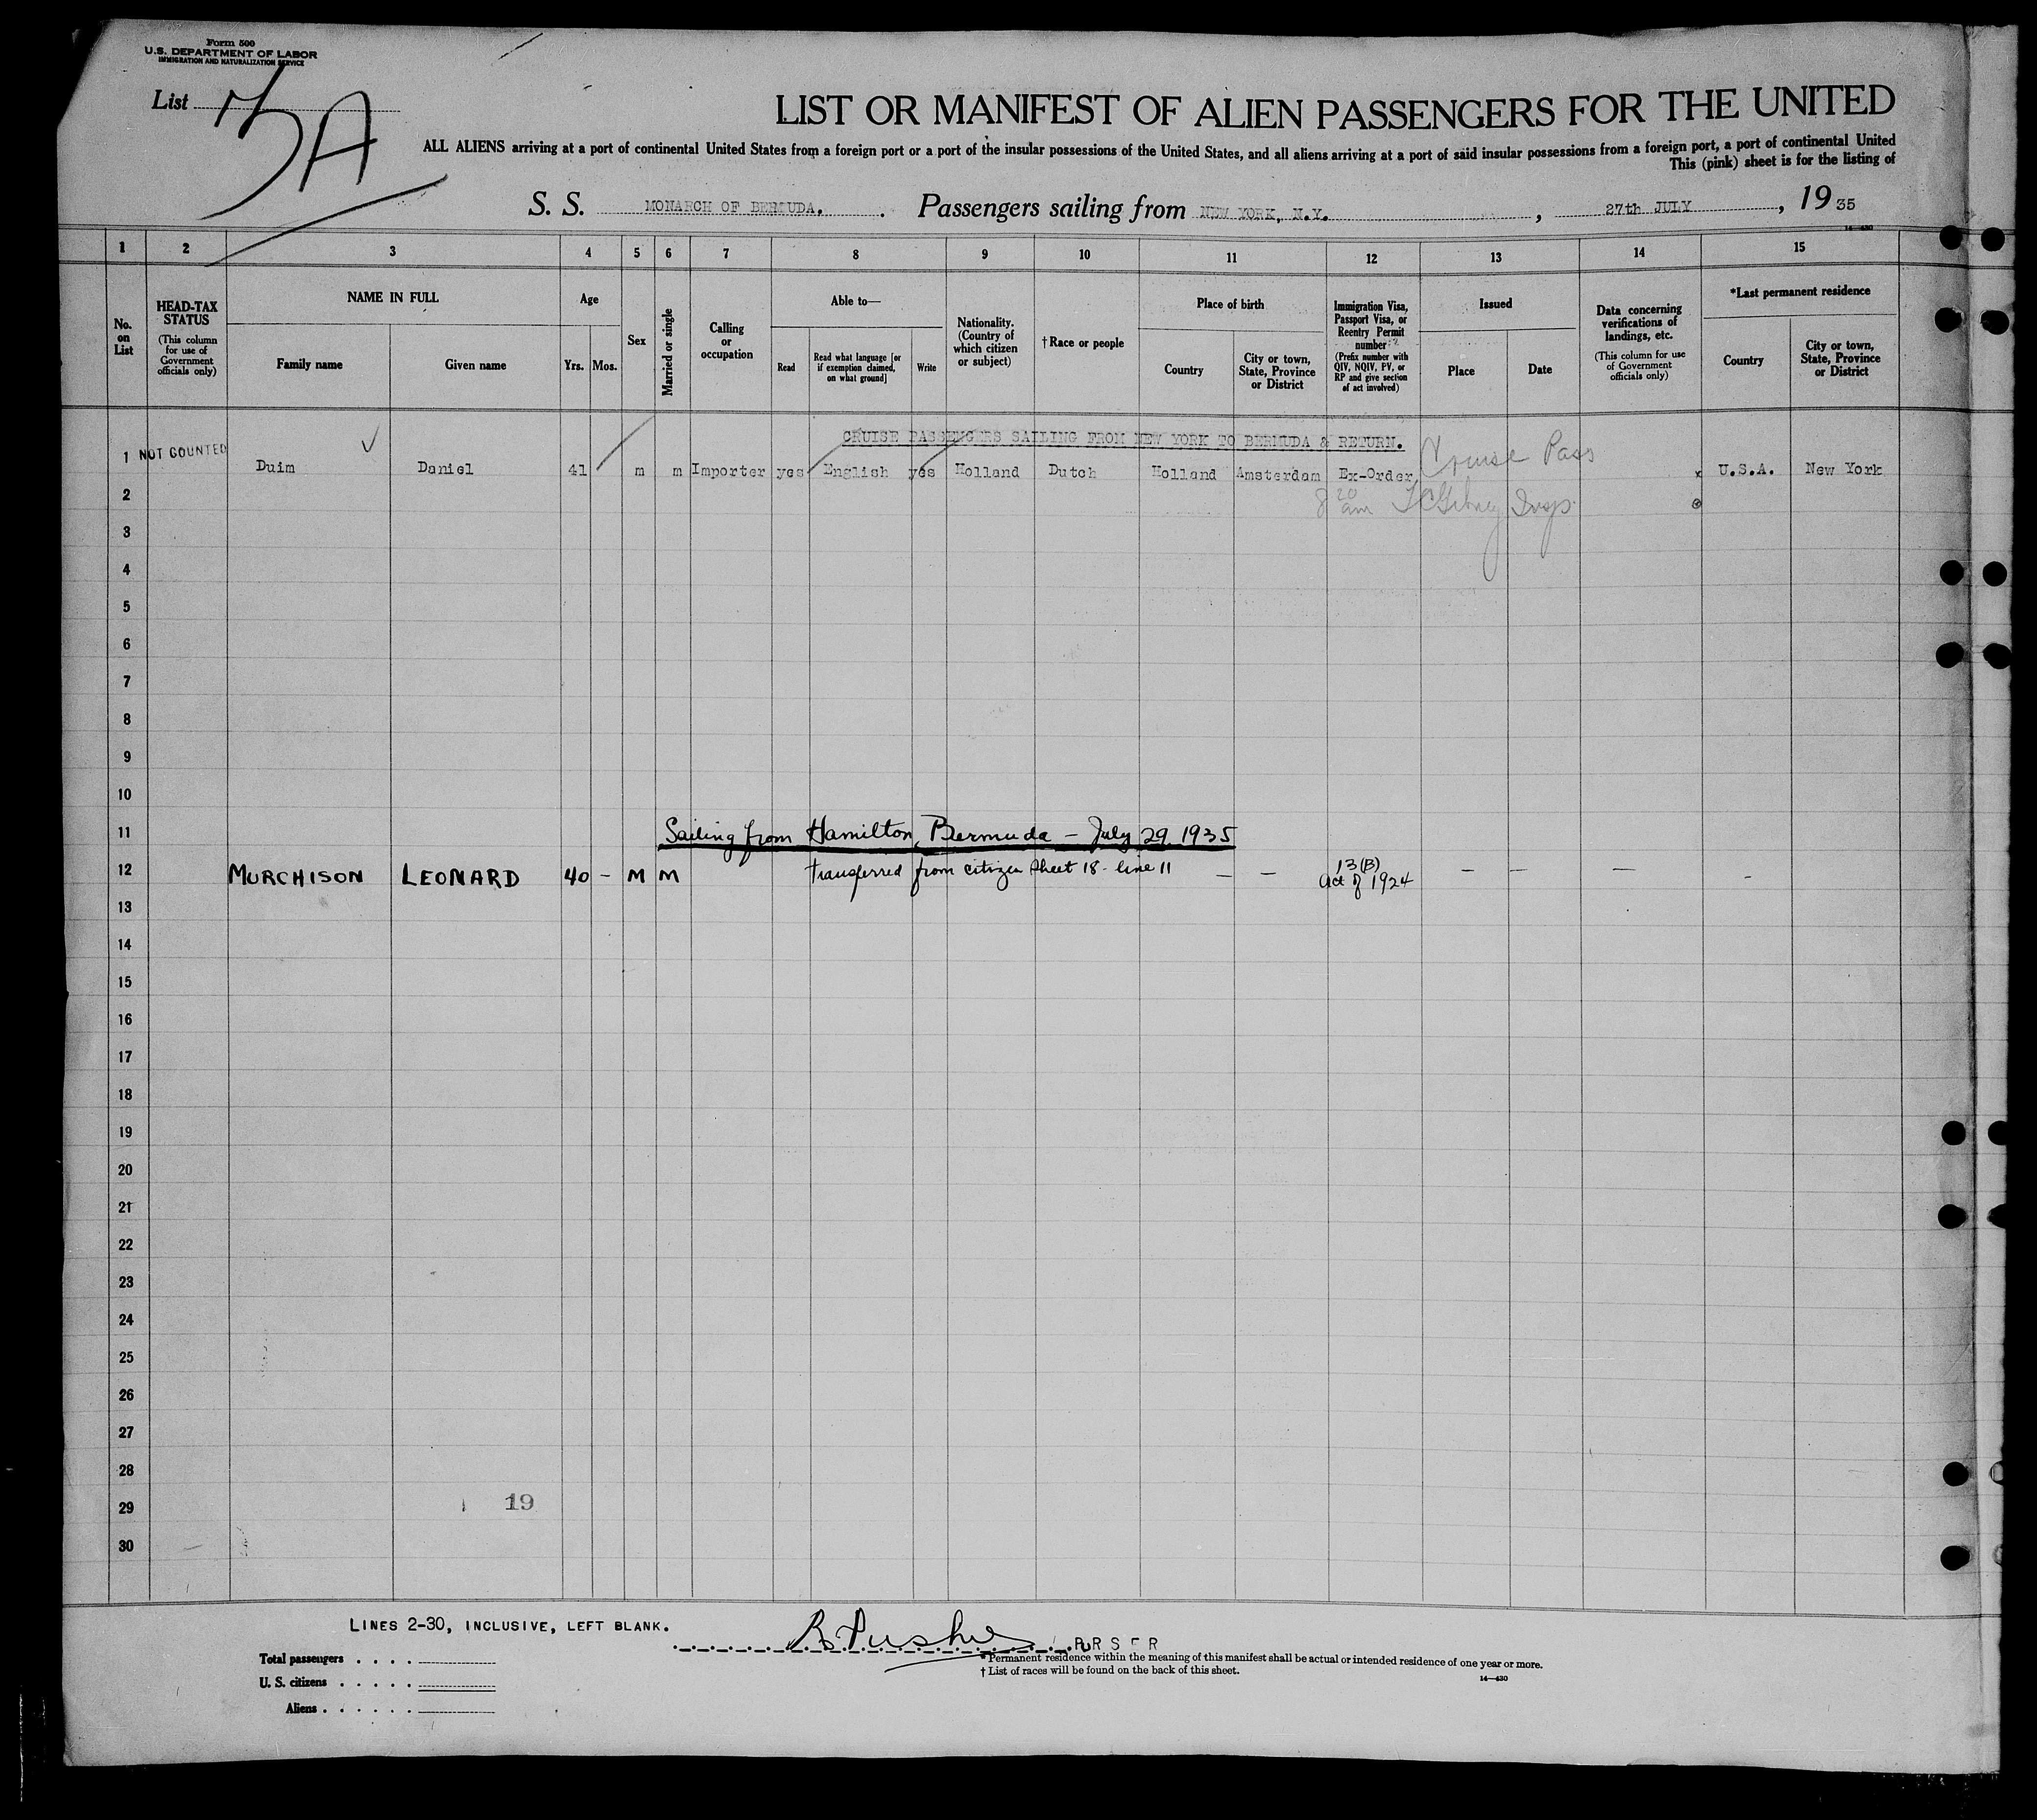 Form 500
U.S. DEPARTMENT OF LABOR
IMMIGRATION AND NATURALIZATION SERVICE
List
A
LIST OR MANIFEST OF ALIEN PASSENGERS FOR THE UNITED
ALL ALIENS arriving at a port of continental United States from a foreign port or a port of the insular possessions of the United States, and all aliens arriving at a port of said insular possessions from a foreign port, a port of continental United
This (pink) sheet is for the listing of
S. S. MONARCH OF BERMUDA. Passengers sailing from NEW YORK, N.Y., 27th JULY, 1935
14—430
1 2 3 4 5 6 7 8 9 10 11 12 13 14 15
No. on List
HEAD-TAX STATUS
(This column for use of Government officials only)
NAME IN FULL
Family name
Given name
Age
Yrs. Mos.
Sex
Married or single
Calling or occupation
Able to—
Read
Read what language [or if exemption claimed, on what ground]
Write
Nationality. (Country of which citizen or subject)
†Race or people
Place of birth
Country
City or town, State, Province or District
Immigration Visa, Passport Visa, or Reentry Permit number
(Prefix number with QIV, NQIV, PV, or RP and give section of act involved)
Issued
Place
Date
Data concerning verifications of landings, etc.
(This column for use of Government officials only)
*Last permanent residence
Country
City or town, State, Province or District
CRUISE PASSENGERS SAILING FROM NEW YORK TO BERMUDA & RETURN.
1 NOT COUNTED Duim Daniel 41 m m Importer yes English yes Holland Dutch Holland Amsterdam Ex-Order Cruise Pass x U.S.A. New York
2 8 20 am Insp.
3
4
5
6
7
8
9
10
11 Sailing from Hamilton, Bermuda – July 29, 1935
12 MURCHISON LEONARD 40 – M M Transferred from citizen sheet 18 - line 11 – – 13(B) Act of 1924 – – – -
13
14
15
16
17
18
19
20
21
22
23
24
25
26
27
28
29 19
30
LINES 2-30, INCLUSIVE, LEFT BLANK.
Total passengers
U. S. citizens
Aliens
* Permanent residence within the meaning of this manifest shall be actual or intended residence of one year or more.
† List of races will be found on the back of this sheet.
14—430